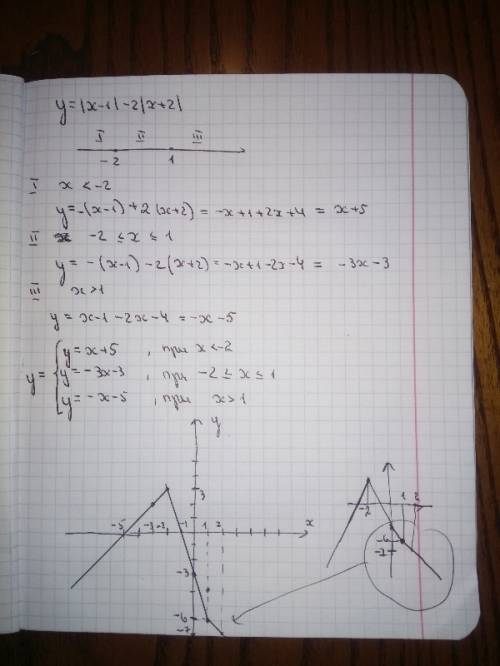 y=|x-1|-2|x+2|
I II III
-2 1
I x < -2
y=-(x-1)+2(x+2) = -x+1+2x+4 = x+5
II -2 ≤ x ≤ 1
y = -(x-1)-2(x+2)=-x+1-2x-4 = -3x-3
III x>1
y = x-1-2x-4 = -x-5
y= { y=x+5 , при x<-2
y=-3x-3 , при -2 ≤ x ≤ 1
y=-x-5 , при x>1
y
3
-5 -3 -2 -1 1 2 x
-3
-6
-7
-2 1 2
-6
-7